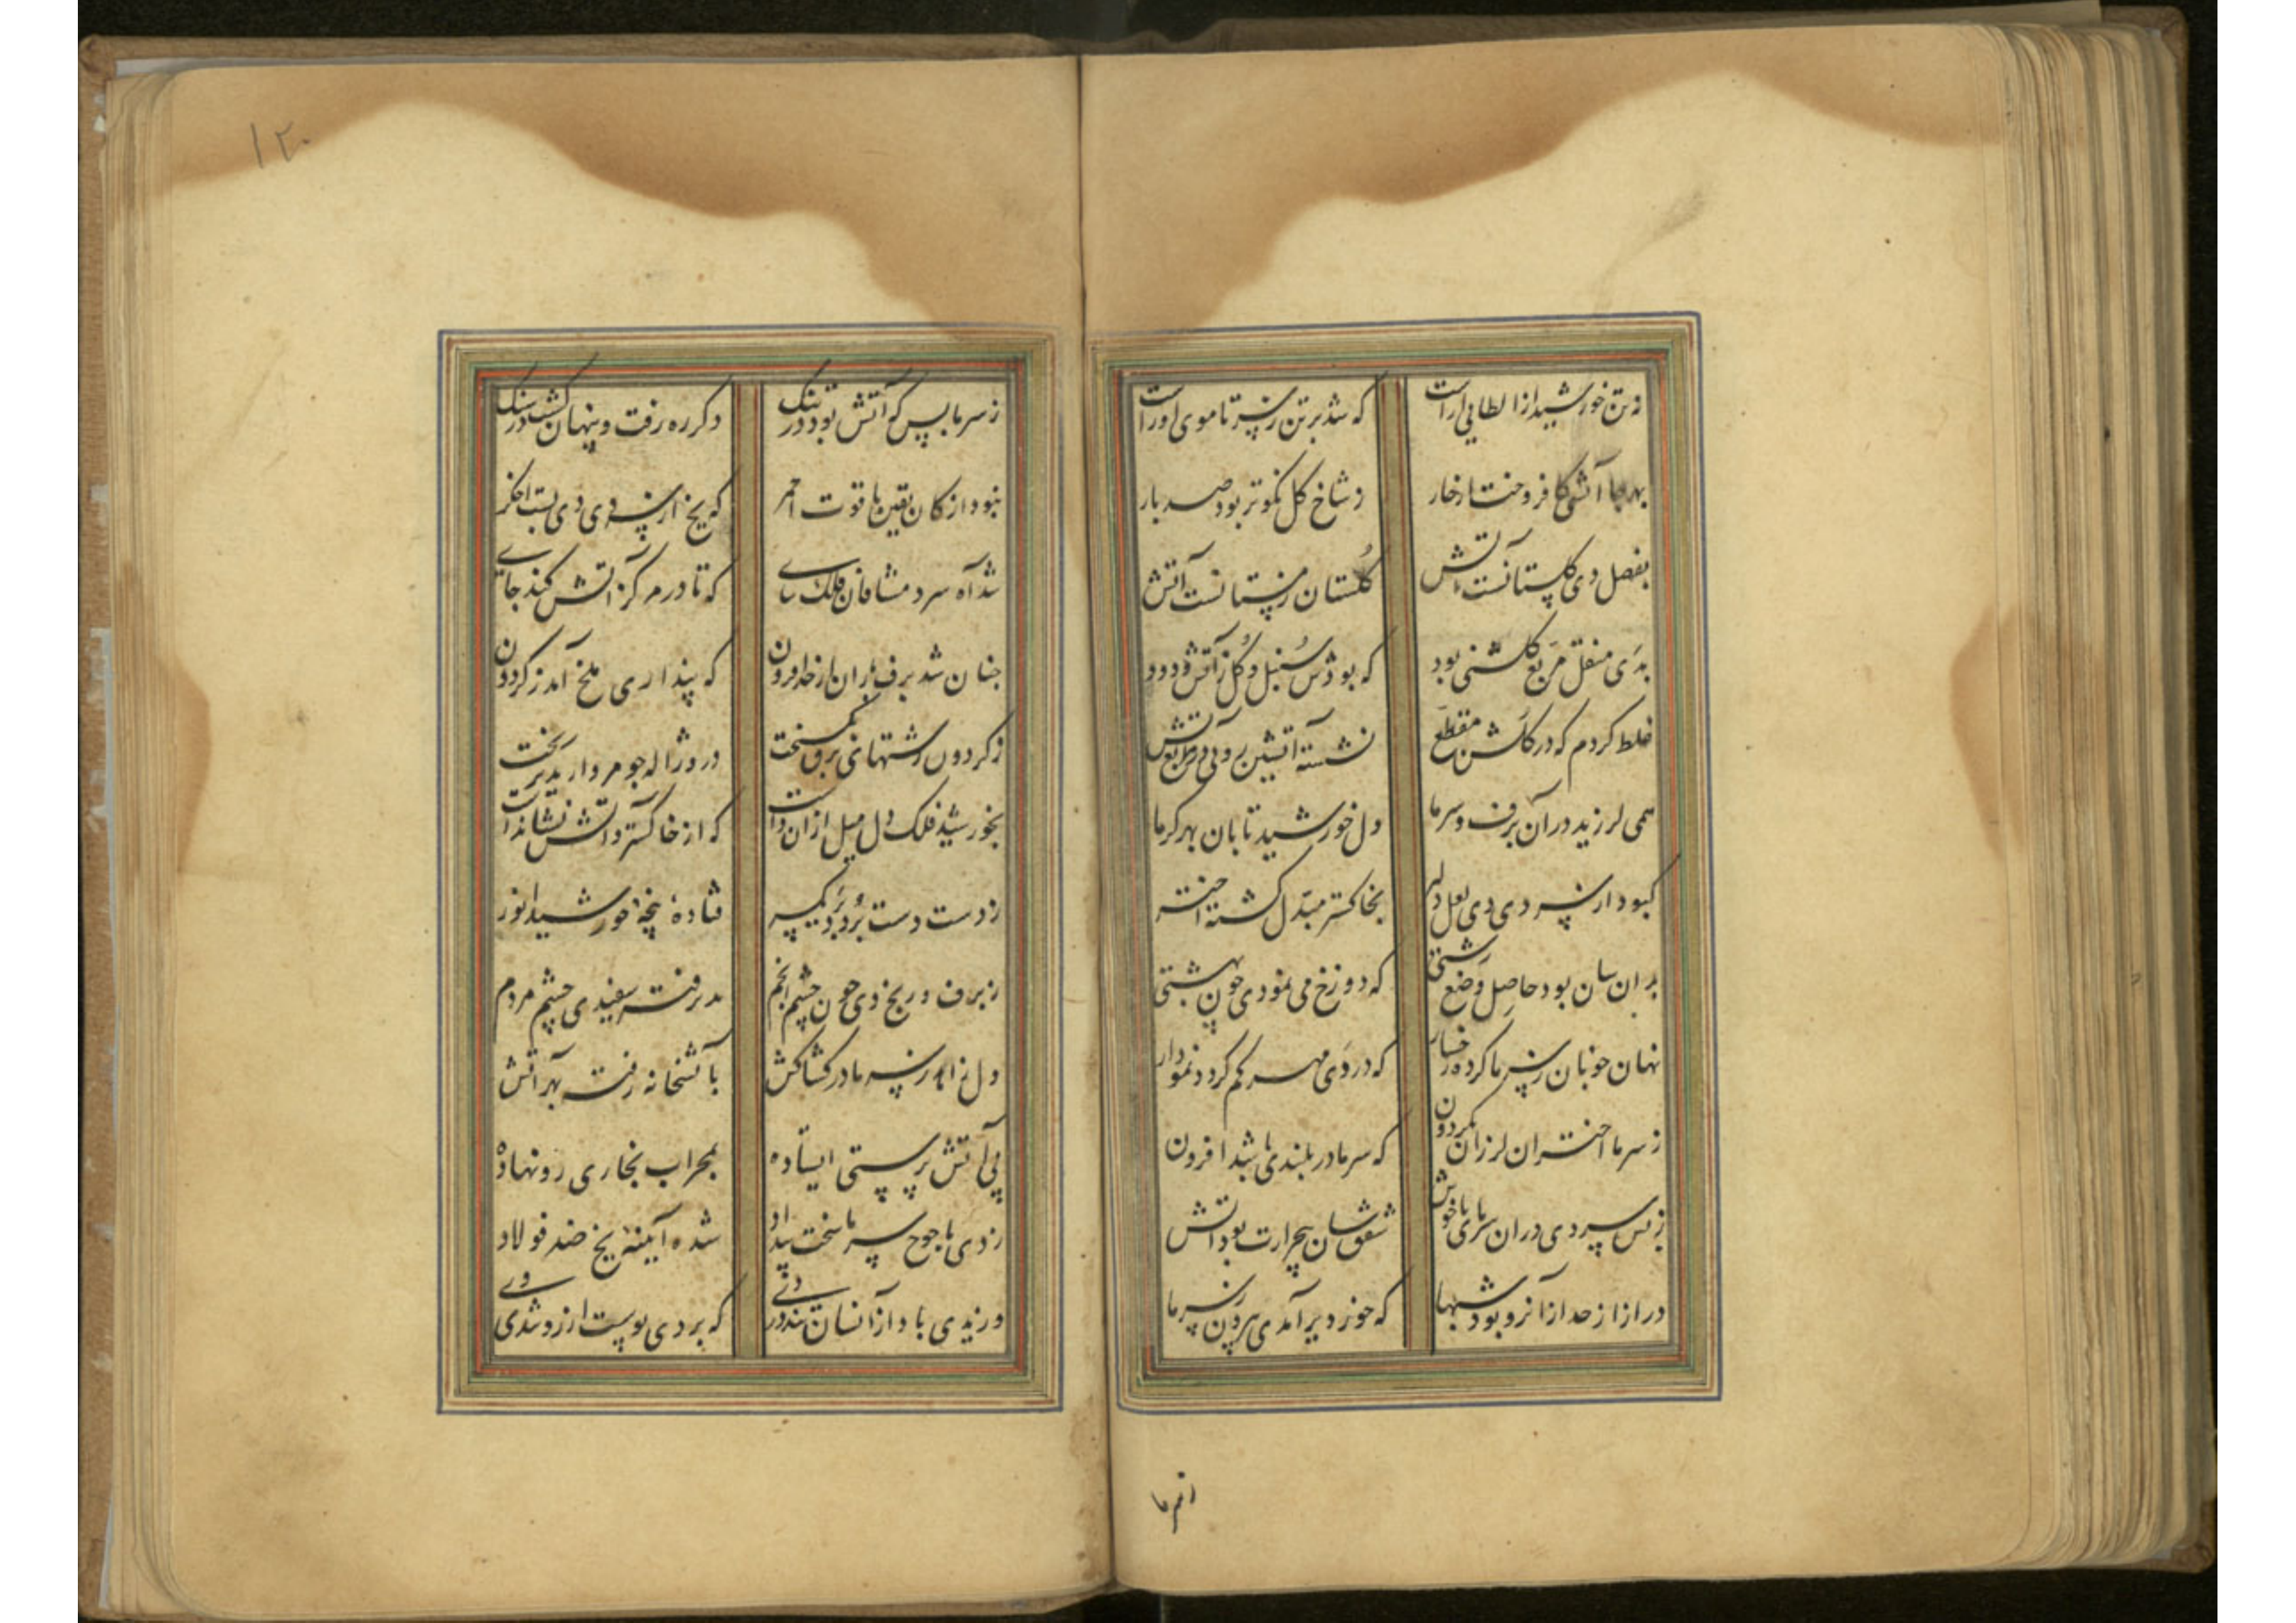 نه تن خورشید از الطافی آراست
که شد بر تن ز سرما موی او راست
بهر جا آتشی کافروخت از خار
ز شاخ گل نکوتر بود صد بار
بفصل دی گلستانست آتش
گلستان زمستانست آتش
بدی منقل مربع گلشنی بود
که بودش سنبل و گل ز آتش و دود
غلط کردم که در گلشن مقطع
نشسته آتشین رویی مربع
همی لرزید در آن برف و سرما
دل خورشید تابان بهر گرما
کبود از سردی دی لعل دلبر
بخاکستر مبدل گشته اختر
بدان سان بود حاصل وضع زشتی
که دوزخ می نمودی چون بهشتی
نهان خوبان ز سرما کرده رخسار
که در دی مهر کم گردد نمودار
ز سرما اختران لرزان بگردون
که سرما در بلندی باشد افزون
ز بس سردی در آن سرمای ناخوش
شفق سان بیحرارت بود آتش
دراز از حد از آنرو بود شبها
که خور دیر آمدی بیرون ز سرما
ز سرما
۱۲۰
ز سرما بس که آتش بود در تنگ
دگر ره رفت و پنهان گشت در سنگ
نبود از کان یقین یاقوت احمر
که یخ از سردی دی بست اخگر
شد آه سرد مشتاقان فلک سای
که تا در مرکز آتش کند جای
چنان شد برف باران از حد افزون
که پنداری ملخ آمد ز گردون
ز گردون رشتهای برق بگسیخت
درو ژاله چو مروارید بر ریخت
بخورشید فلک دل میل از آن داشت
که از خاکستر و آتش نشان داشت
ز دست دست برد برد یکسر
فتاده پنجه خورشید انور
ز برف و ریخ دی چون چشم انجم
بدر رفته سفیدی چشم مردم
دل زاهد ز سرما در کشاکش
بآتشخانه رفته بهر آتش
پی آتش پرستی ایستاده
بمحراب بخاری رو نهاده
ز دی یاجوج سرما سخت بیداد
شده آیینه یخ ضد فولاد
وزیدی باد از آنسان تند در دی
که بردی پوست از رو شدی وی